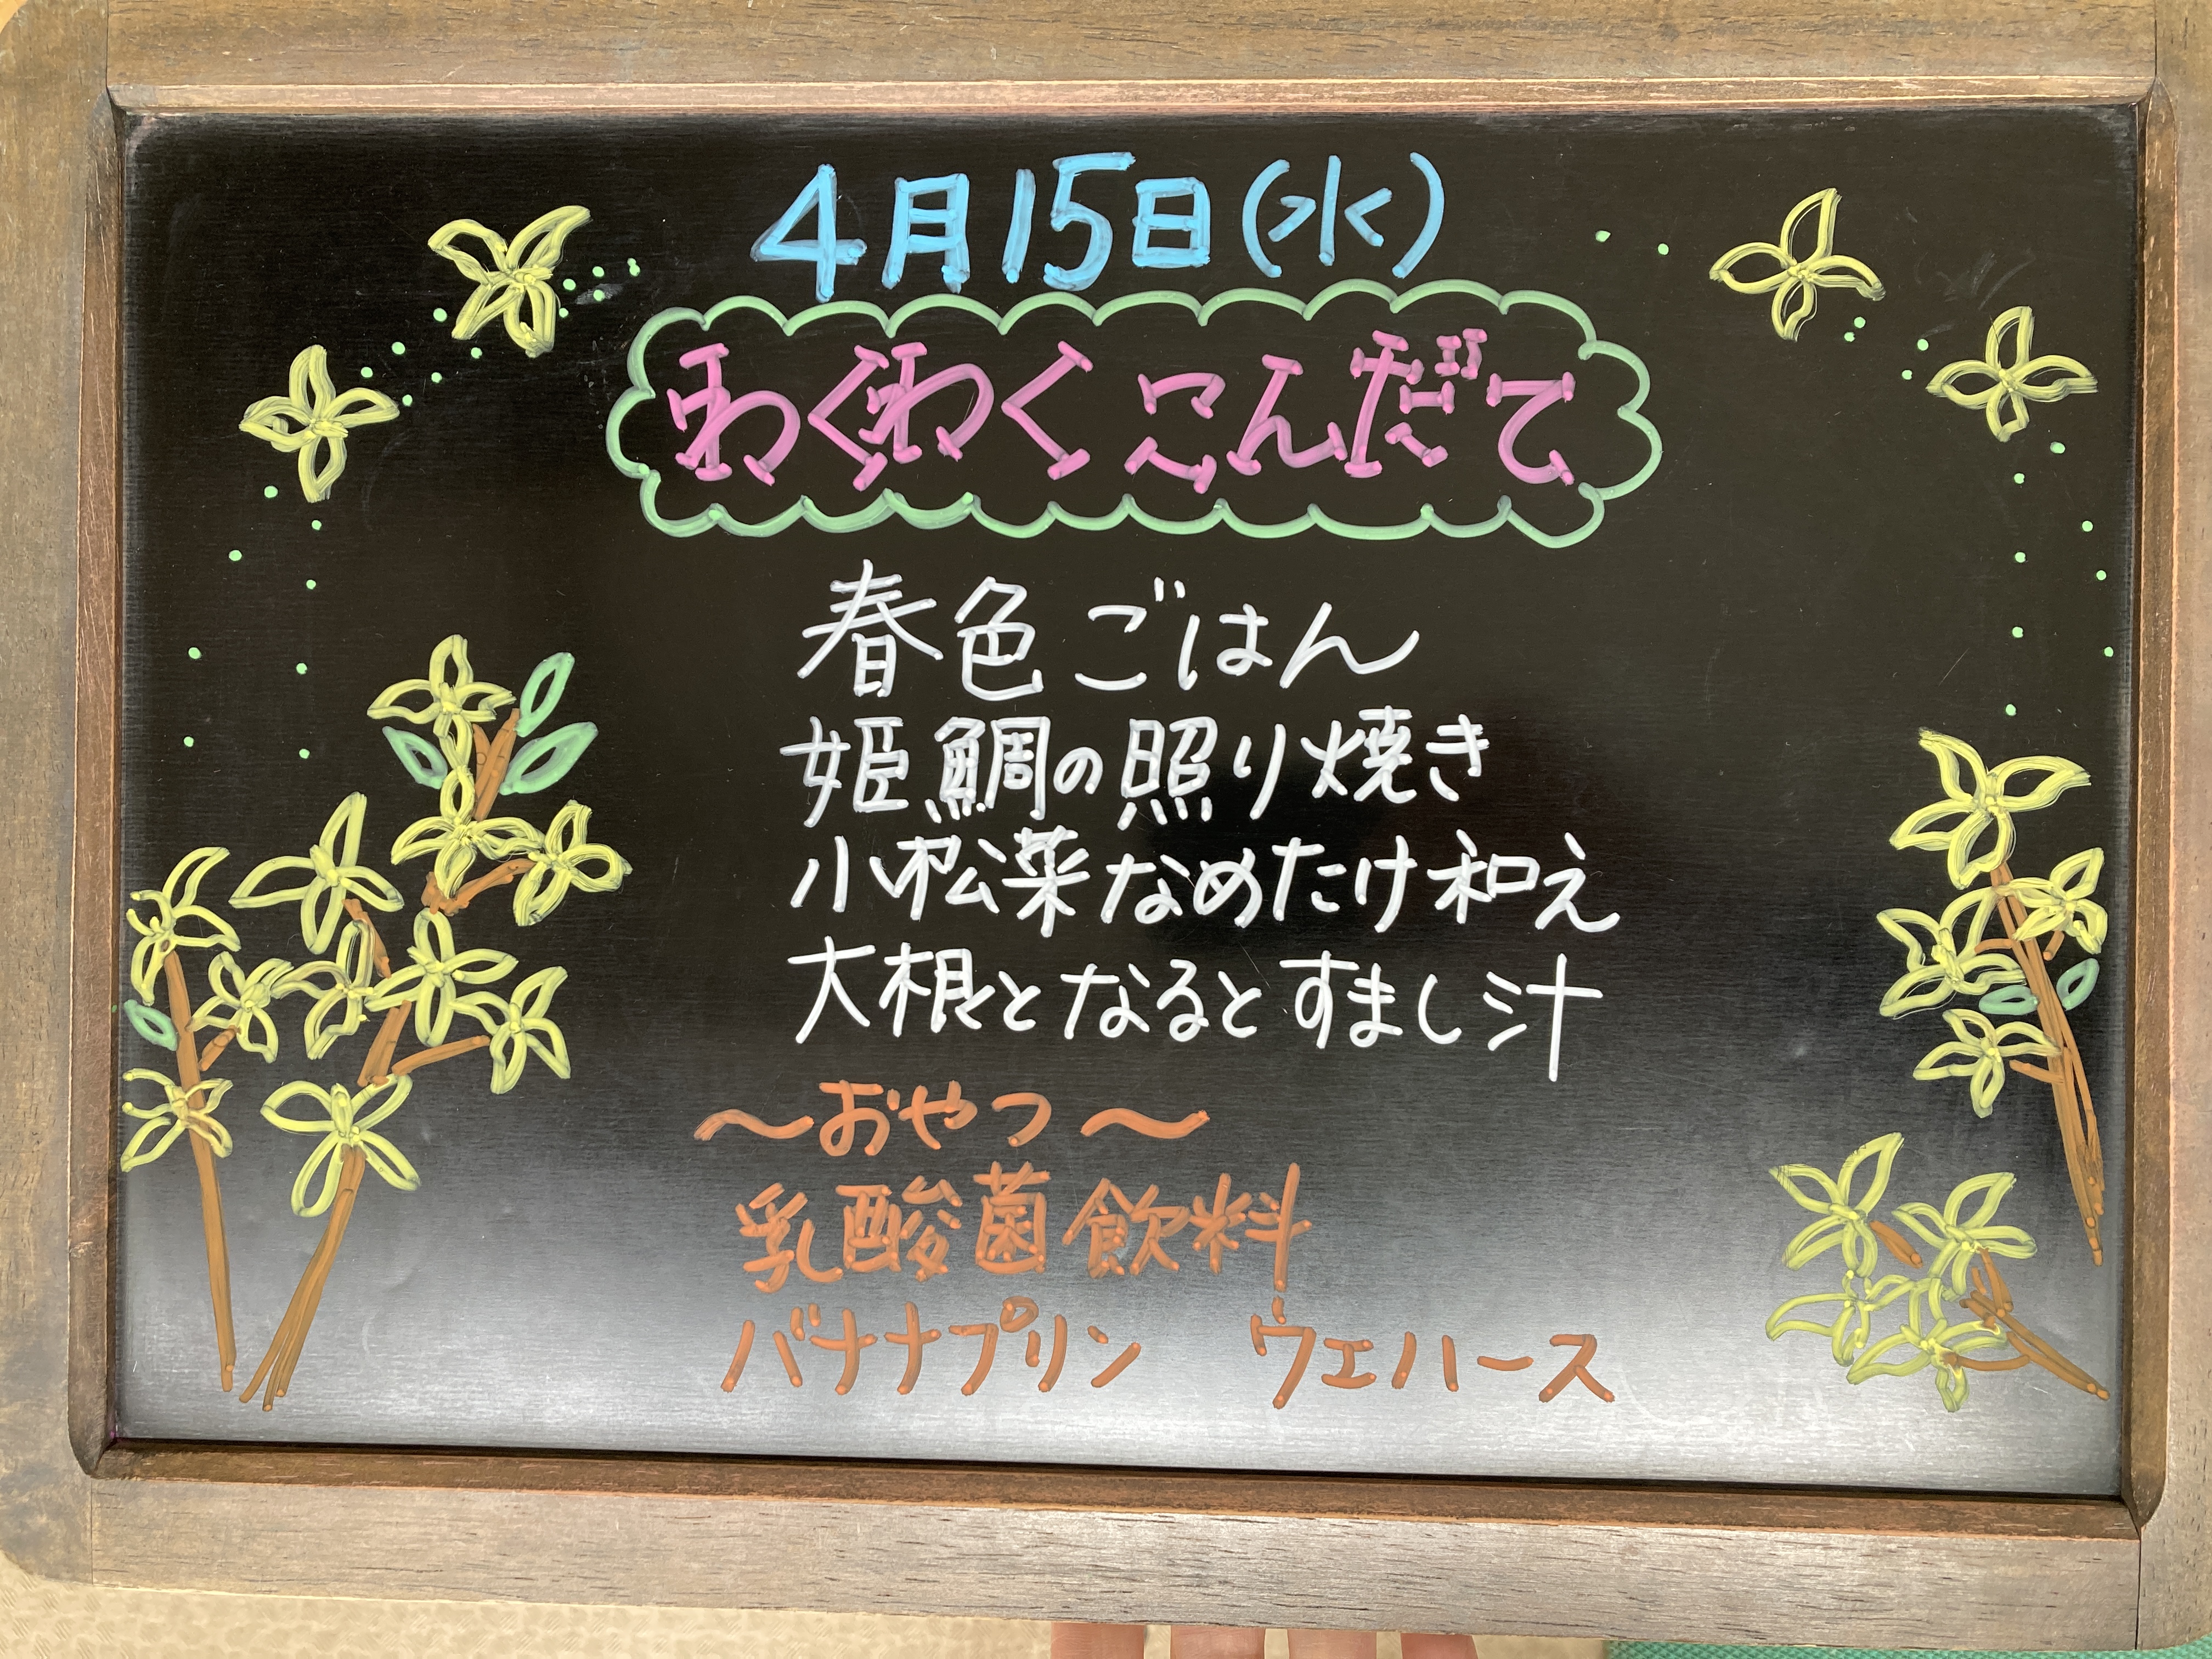 4月15日(水)
わくわくこんだて
春色ごはん
姫鯛の照り焼き
小松菜なめたけ和え
大根となるとすまし汁
～おやつ～
乳酸菌飲料
バナナプリン　ウエハース